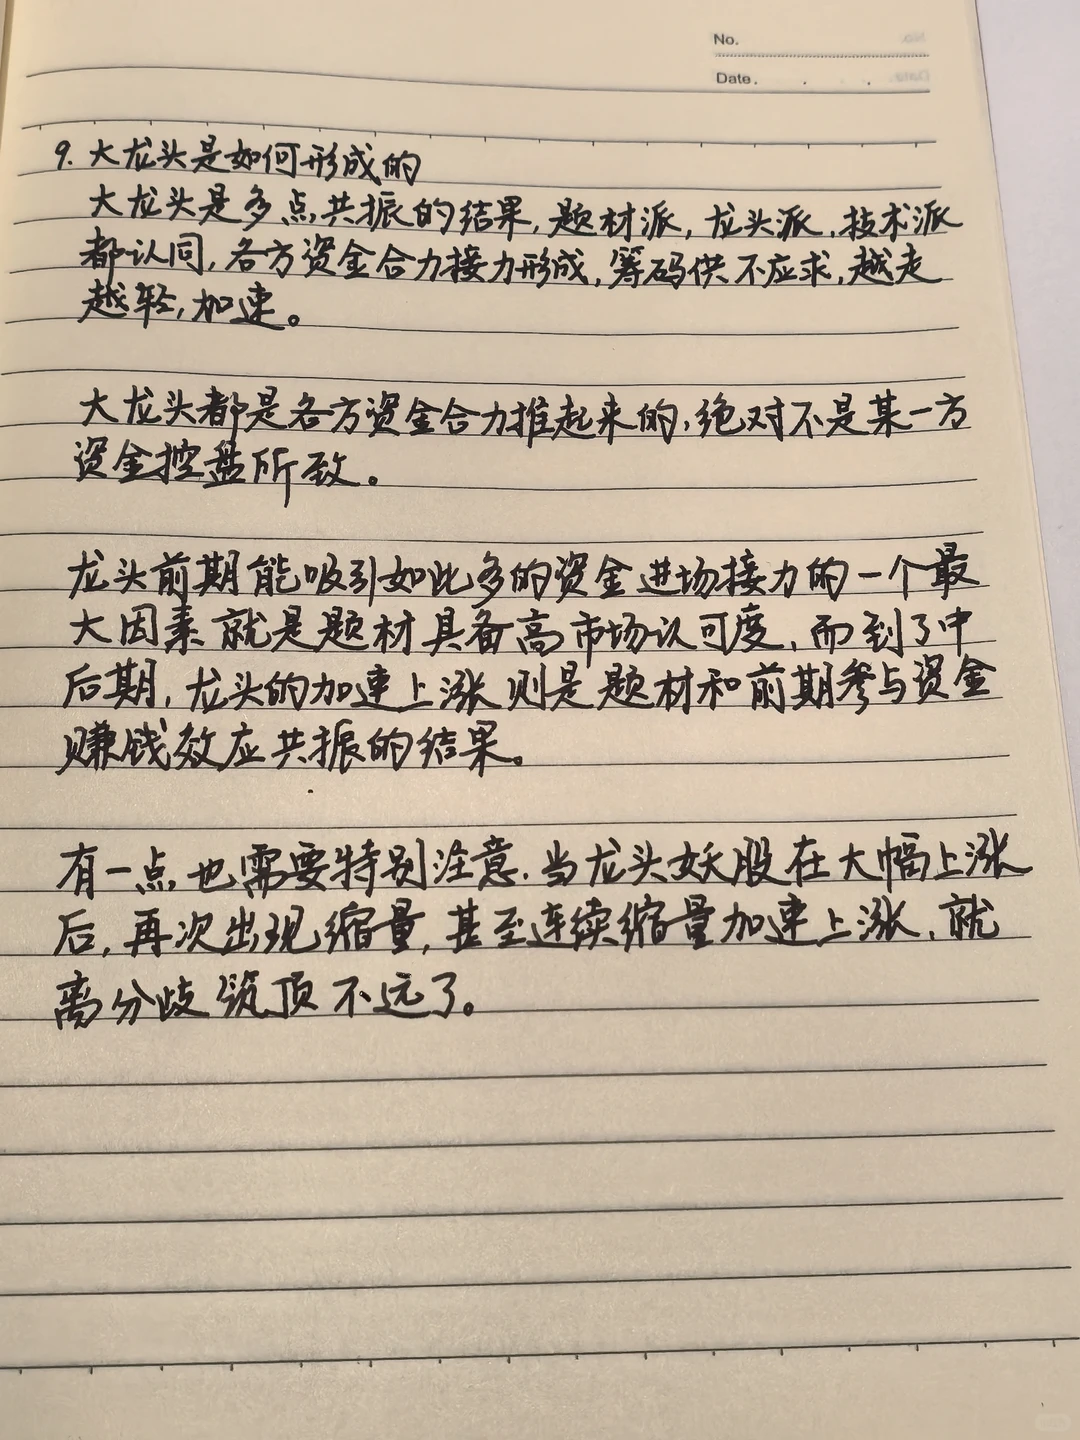 No.
Date.
9. 大龙头是如何形成的
大龙头是多点共振的结果,题材派,龙头派,技术派
都认同,各方资金合力接力形成,筹码供不应求,越走
越轻,加速。
大龙头都是各方资金合力推起来的,绝对不是某一方
资金控盘所致。
龙头前期能吸引如此多的资金进场接力的一个最
大因素就是题材具备高市场认可度,而到了中
后期,龙头的加速上涨则是题材和前期参与资金
赚钱效应共振的结果。
有一点也需要特别注意.当龙头妖股在大幅上涨
后,再次出现缩量,甚至连续缩量加速上涨,就
离分歧筑顶不远了。